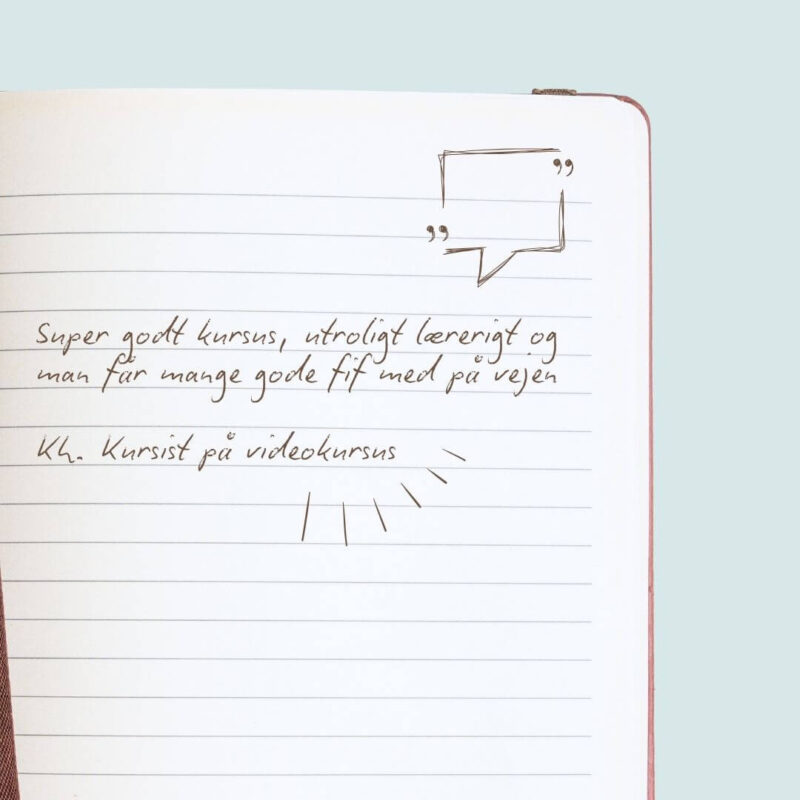 Super godt kursus, utroligt lærerigt og
man får mange gode fif med på vejen
Kh. Kursist på videokursus